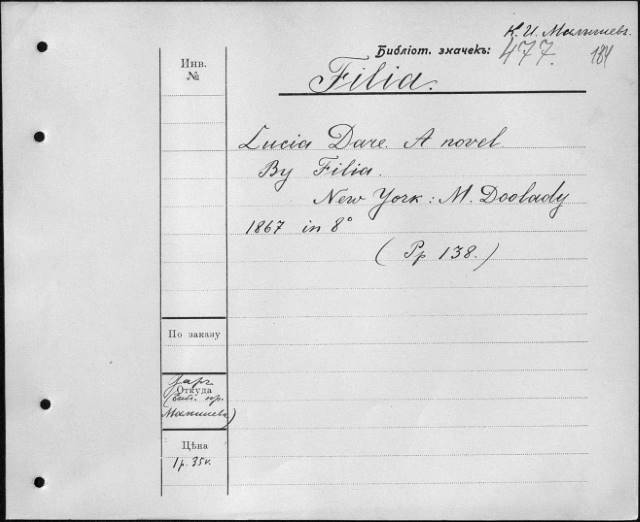 К. И. Малышевъ.
Библіот. значекъ: 477. 184
Инв. №
Filia.
Lucia Dare. A novel.
By Filia.
New York: M. Doolady
1867 in 8°
(Pp 138.)
По заказу
Откуда
Малышева)
Цѣна
1 р. 35 к.